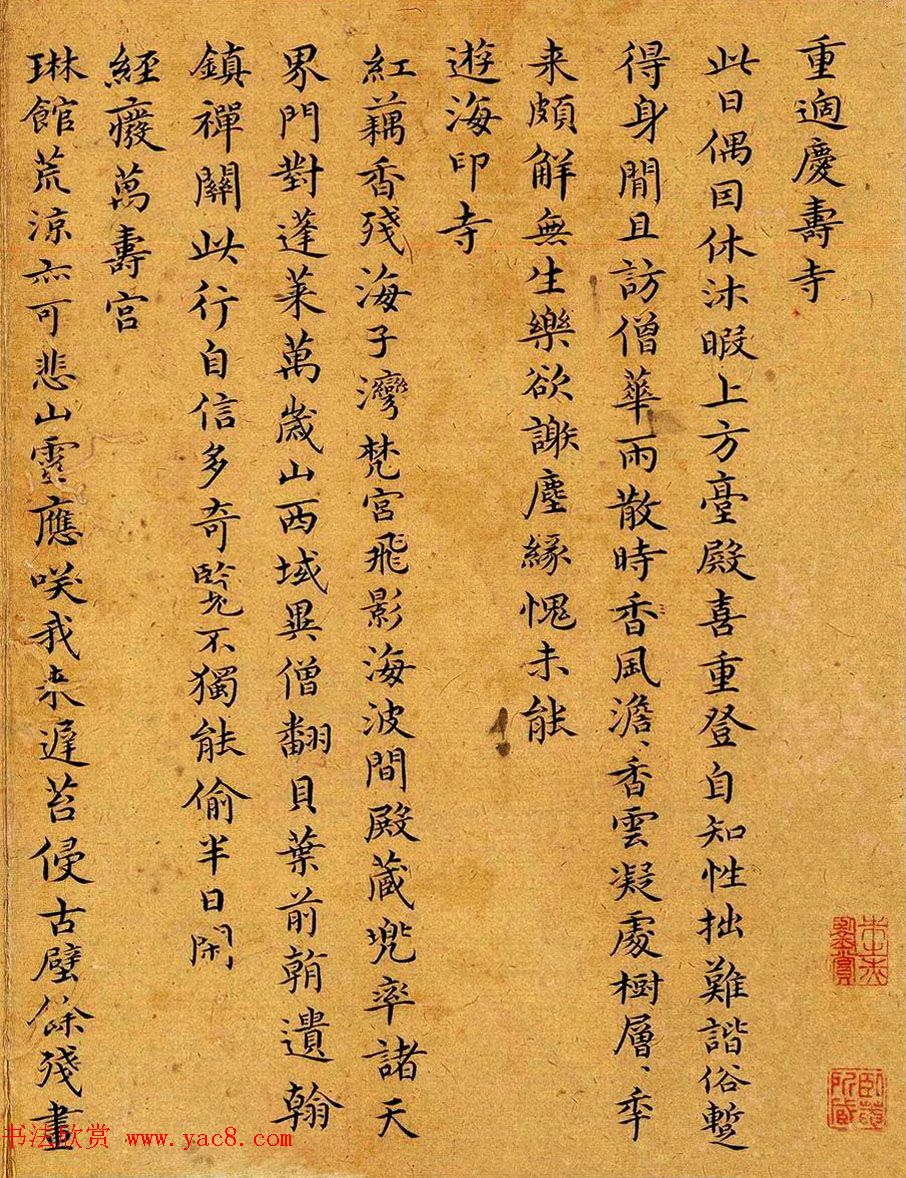 重適慶壽寺
此日偶因休沐暇上方臺殿喜重登自知性拙難諧俗暫
得身閒且訪僧華雨散時香風澹、香雲凝處樹層、年
来頗解無生樂欲謝塵緣愧未能
遊海印寺
紅藕香殘海子灣梵宮飛影海波間殿藏兜率諸天
界門對蓬萊萬歲山西域異僧翻貝葉前朝遺翰
鎮禪關此行自信多奇不獨能偷半日閑
經癈萬壽宮
琳館荒涼亦可悲山靈應咲我来遲苔侵古壁餘殘畫
书法欣赏 www.yac8.com